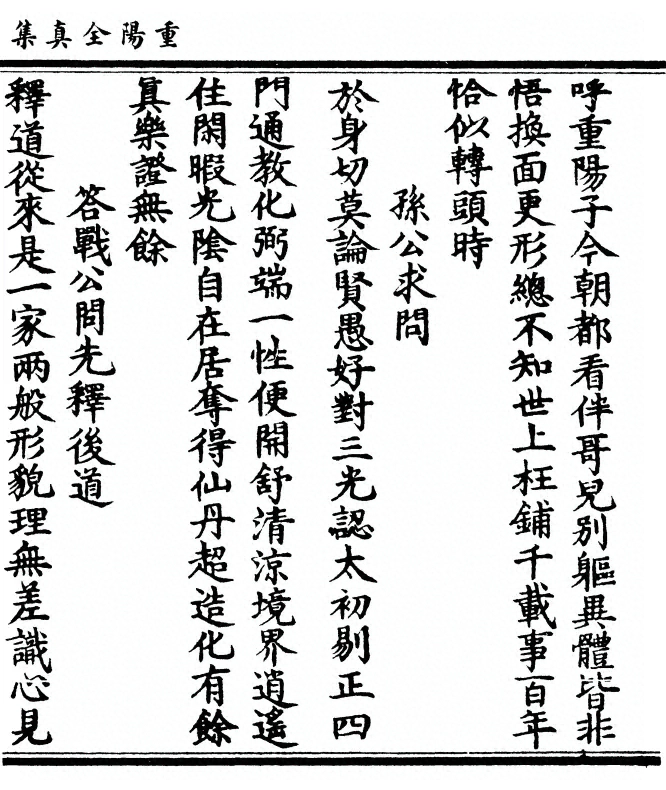 重陽全真集
呼重陽子今朝都看伴哥兒別軀異體皆非
悟換面更形總不知世上枉鋪千載事百年
恰似轉頭時
孫公求問
於身切莫論賢愚好對三光認太初剔正四
門通教化弼端一性便開舒清涼境界逍遙
住閑暇光陰自在居奪得仙丹超造化有餘
真樂證無餘
答戰公問先釋後道
釋道從來是一家兩般形貌理無差識心見